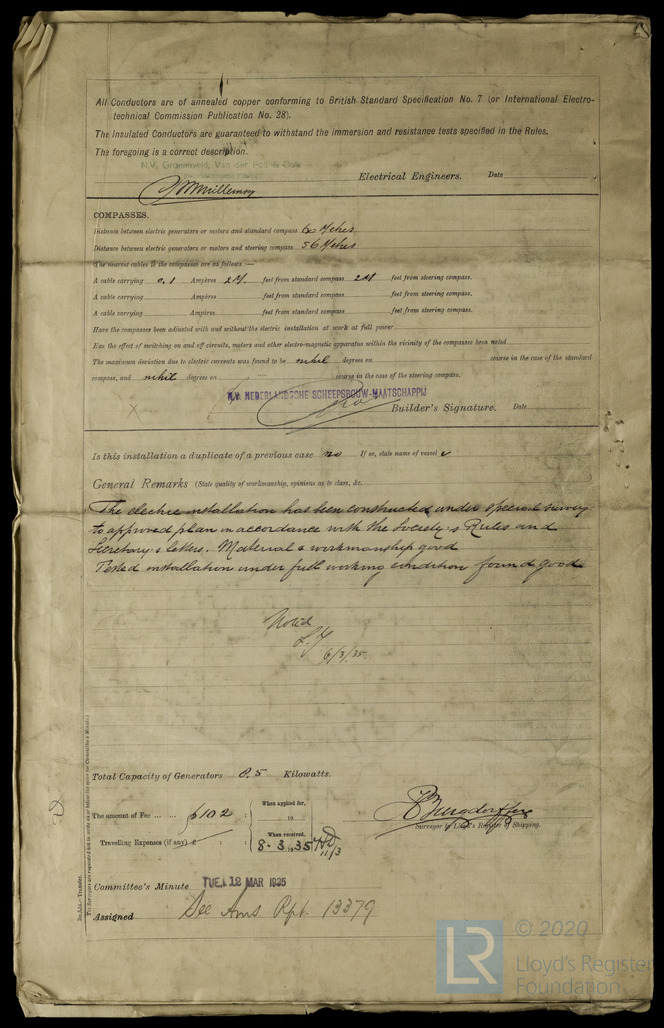 All Conductors are of annealed copper conforming to British Standard Specification No. 7 (or International Electro-
technical Commission Publication No. 28).
The Insulated Conductors are guaranteed to withstand the immersion and resistance tests specified in the Rules.
The foregoing is a correct description.
N.V. Groeneveld, Van der Poll & Co's
Electrical Engineers. Date
COMPASSES.
Distance between electric generators or motors and standard compass
Distance between electric generators or motors and steering compass 56
The nearest cables to the compasses are as follows:—
A cable carrying 0.1 Ampères feet from standard compass feet from steering compass.
A cable carrying Ampères feet from standard compass feet from steering compass.
A cable carrying Ampères feet from standard compass feet from steering compass.
Have the compasses been adjusted with and without the electric installation at work at full power
Has the effect of switching on and off circuits, motors and other electro-magnetic apparatus within the vicinity of the compasses been noted
The maximum deviation due to electric currents was found to be nihil degrees on course in the case of the standard
compass, and nihil degrees on course in the case of the steering compass.
N.V. NEDERLANDSCHE SCHEEPSBOUW-MAATSCHAPPIJ
Builder's Signature. Date
Is this installation a duplicate of a previous case no If so, state name of vessel
General Remarks (State quality of workmanship, opinions as to class, &c.
The electric installation has been constructed under special survey
to approved plan in accordance with the Society's Rules and
Secretary's letters. Material & workmanship good
Tested installation under full working condition found good
Noted
6/3/35
Total Capacity of Generators 8.5 Kilowatts.
The amount of Fee ... ... ƒ102 : When applied for, 19
Travelling Expenses (if any) £ : : When received, 8.3.1935 11/3
Surveyor to Lloyd's Register of Shipping.
Committee's Minute TUE. 12 MAR 1935
Assigned See Ams Rpt. 13379
(The Surveyors are requested not to write on or below the space for Committee's Minute.)
© 2020
LR
Lloyd's Register
Foundation